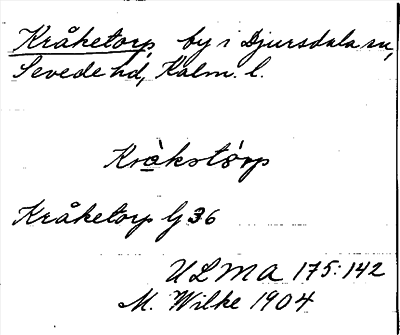 Kråketorp, by i Djursdala sn,
Sevede hd, Kalm. l.
Kràkstòrp
Kråketorp lj 36
ULMA 175:142
M. Wilke 1904